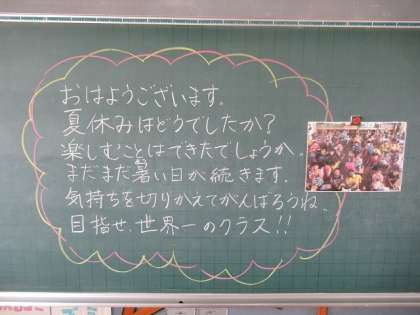 おはようございます。
夏休みはどうでしたか?
楽しむことはできたでしょうか。
まだまだ暑い日が続きます。
気持ちを切りかえてがんばろうね。
目指せ、世界一のクラス!!